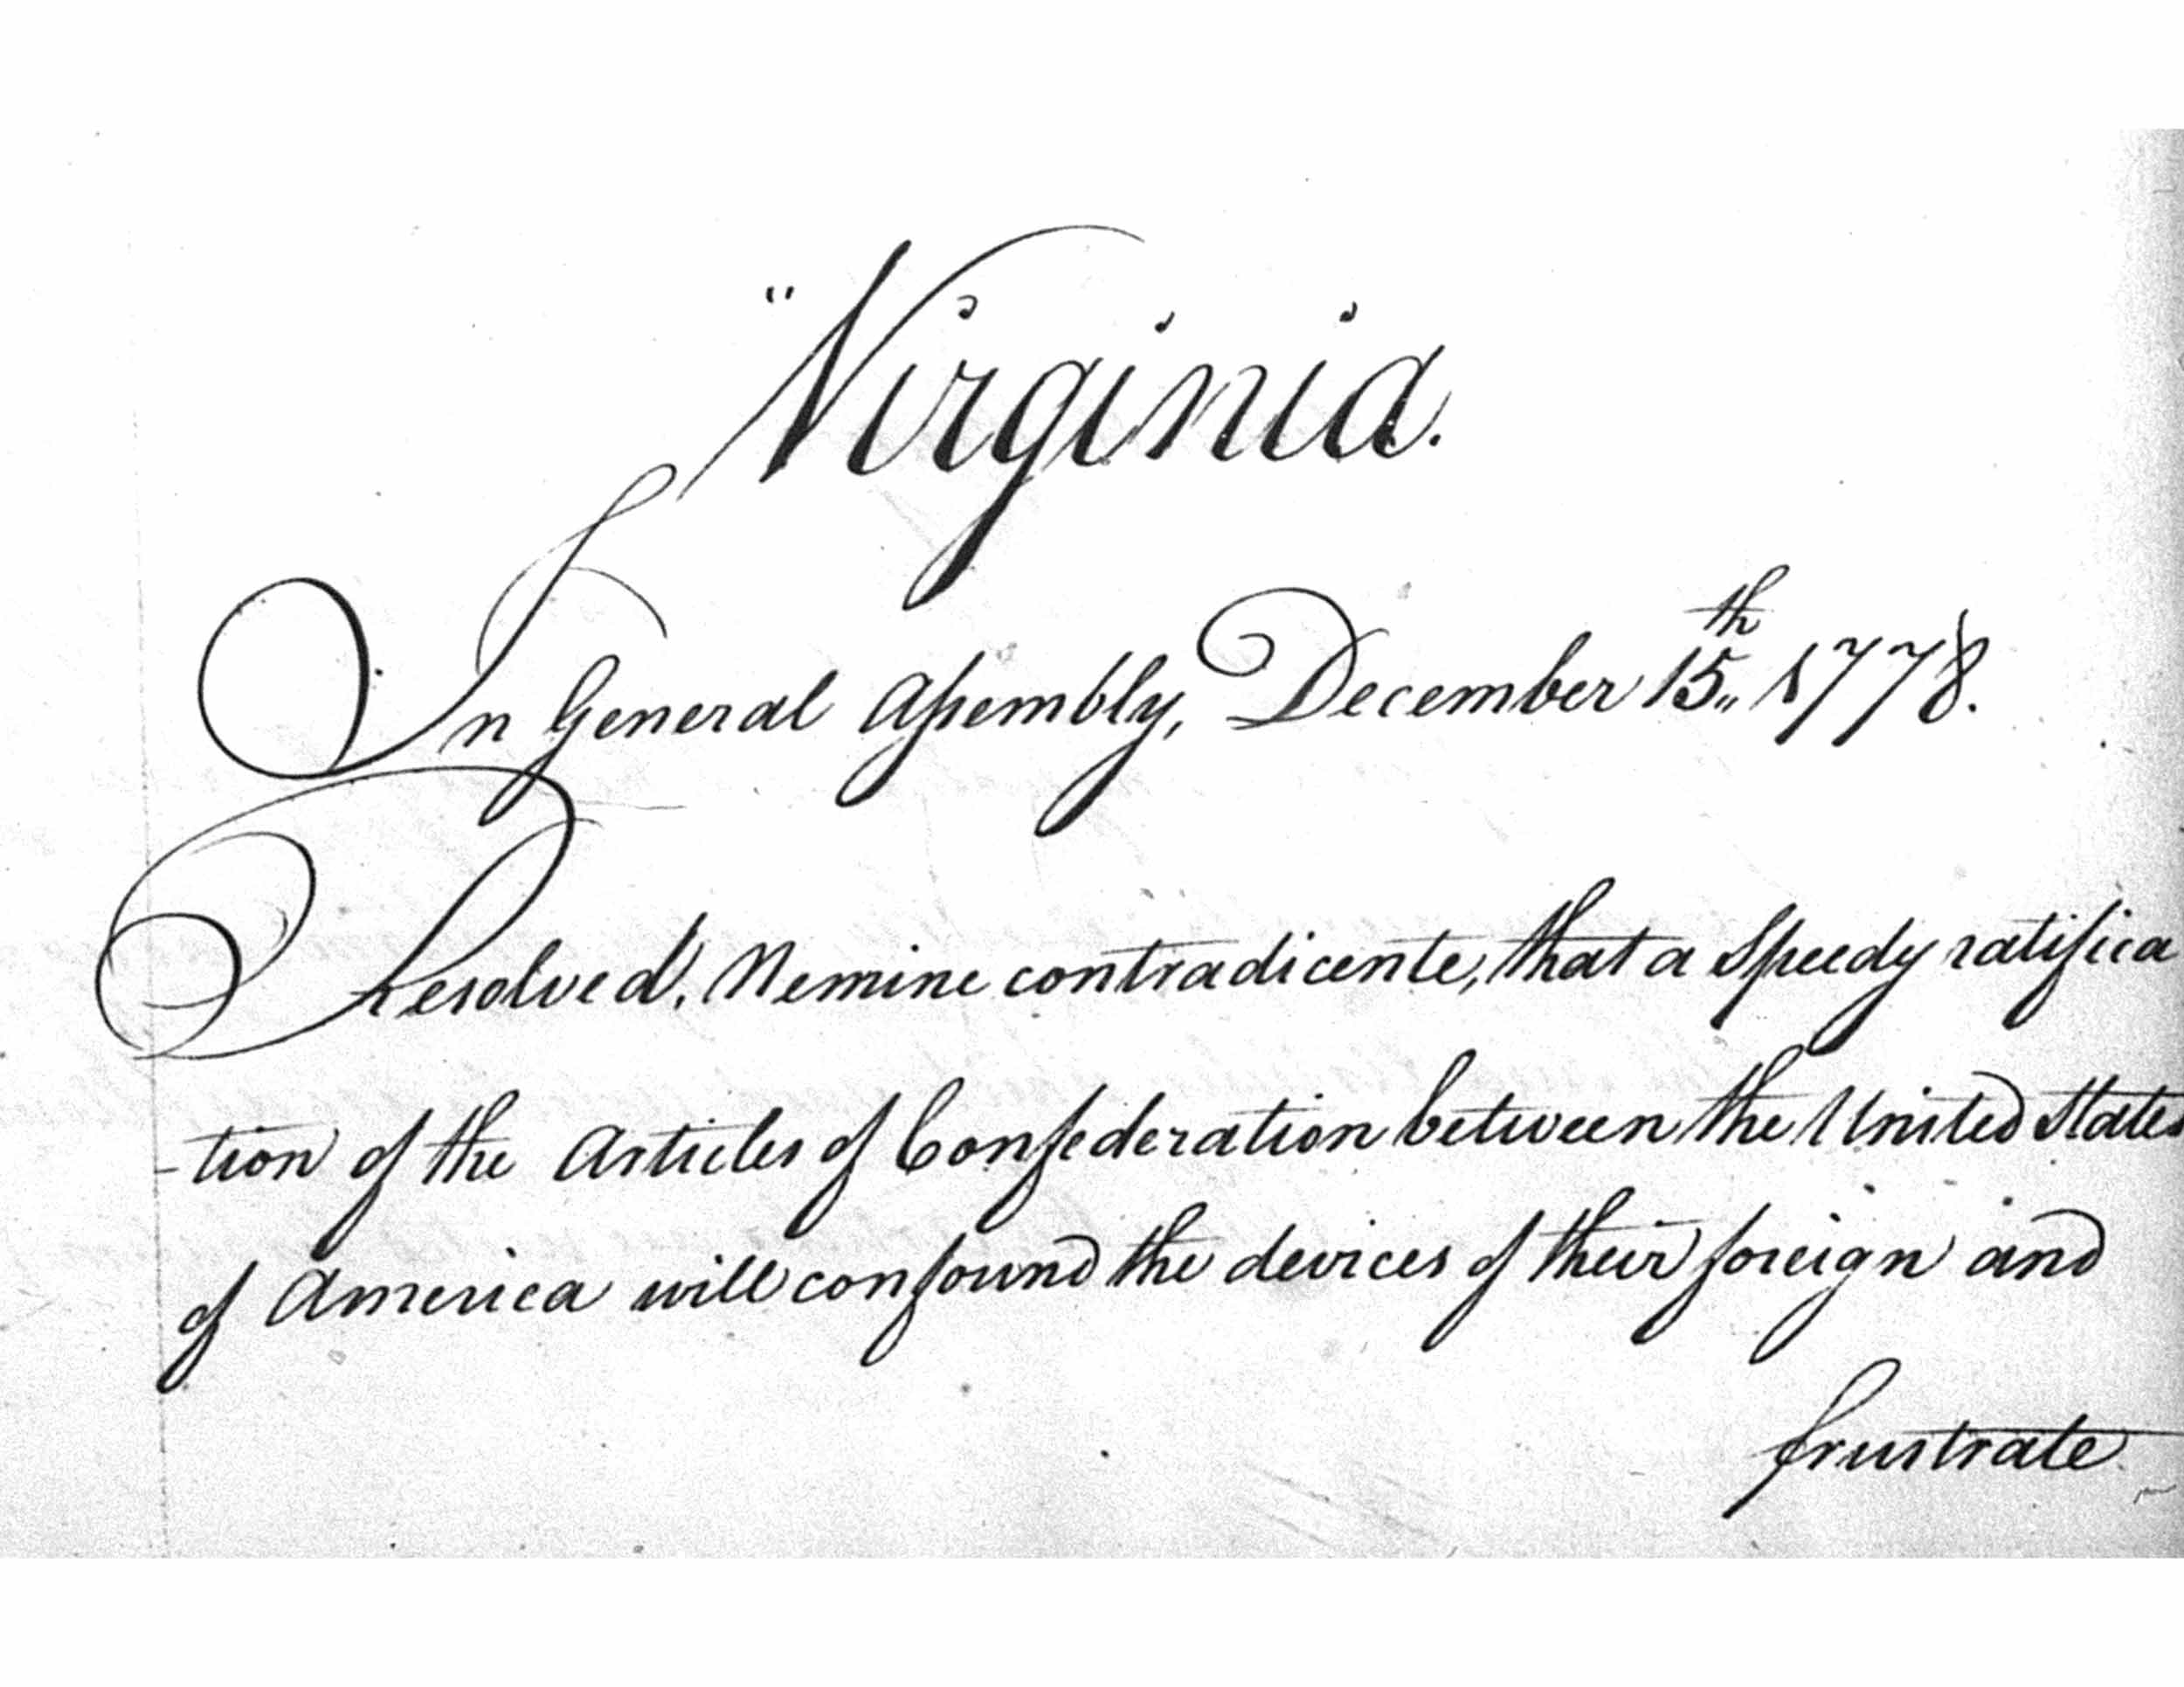 "Virginia.
In General Assembly, December 15th 1778.
Resolved, Nemine contradicente, that a Speedy ratifica
-tion of the Articles of Confederation between the United States
of America will confound the devices of their foreign and
frustrate